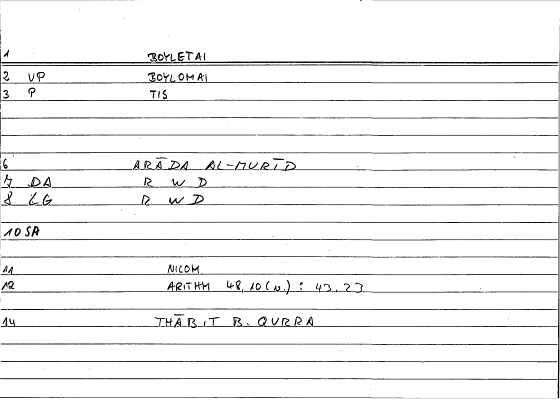 1 BOYLETAI
2 VP BOYLOMAI
3 P TIS
6 ARĀDA AL-MURĪD
7 DA R W D
8 LG R W D
10 SA
11 NICOM
12 ARITHM 48,10(N.) : 43,23
14 THĀBIT B. QURRA